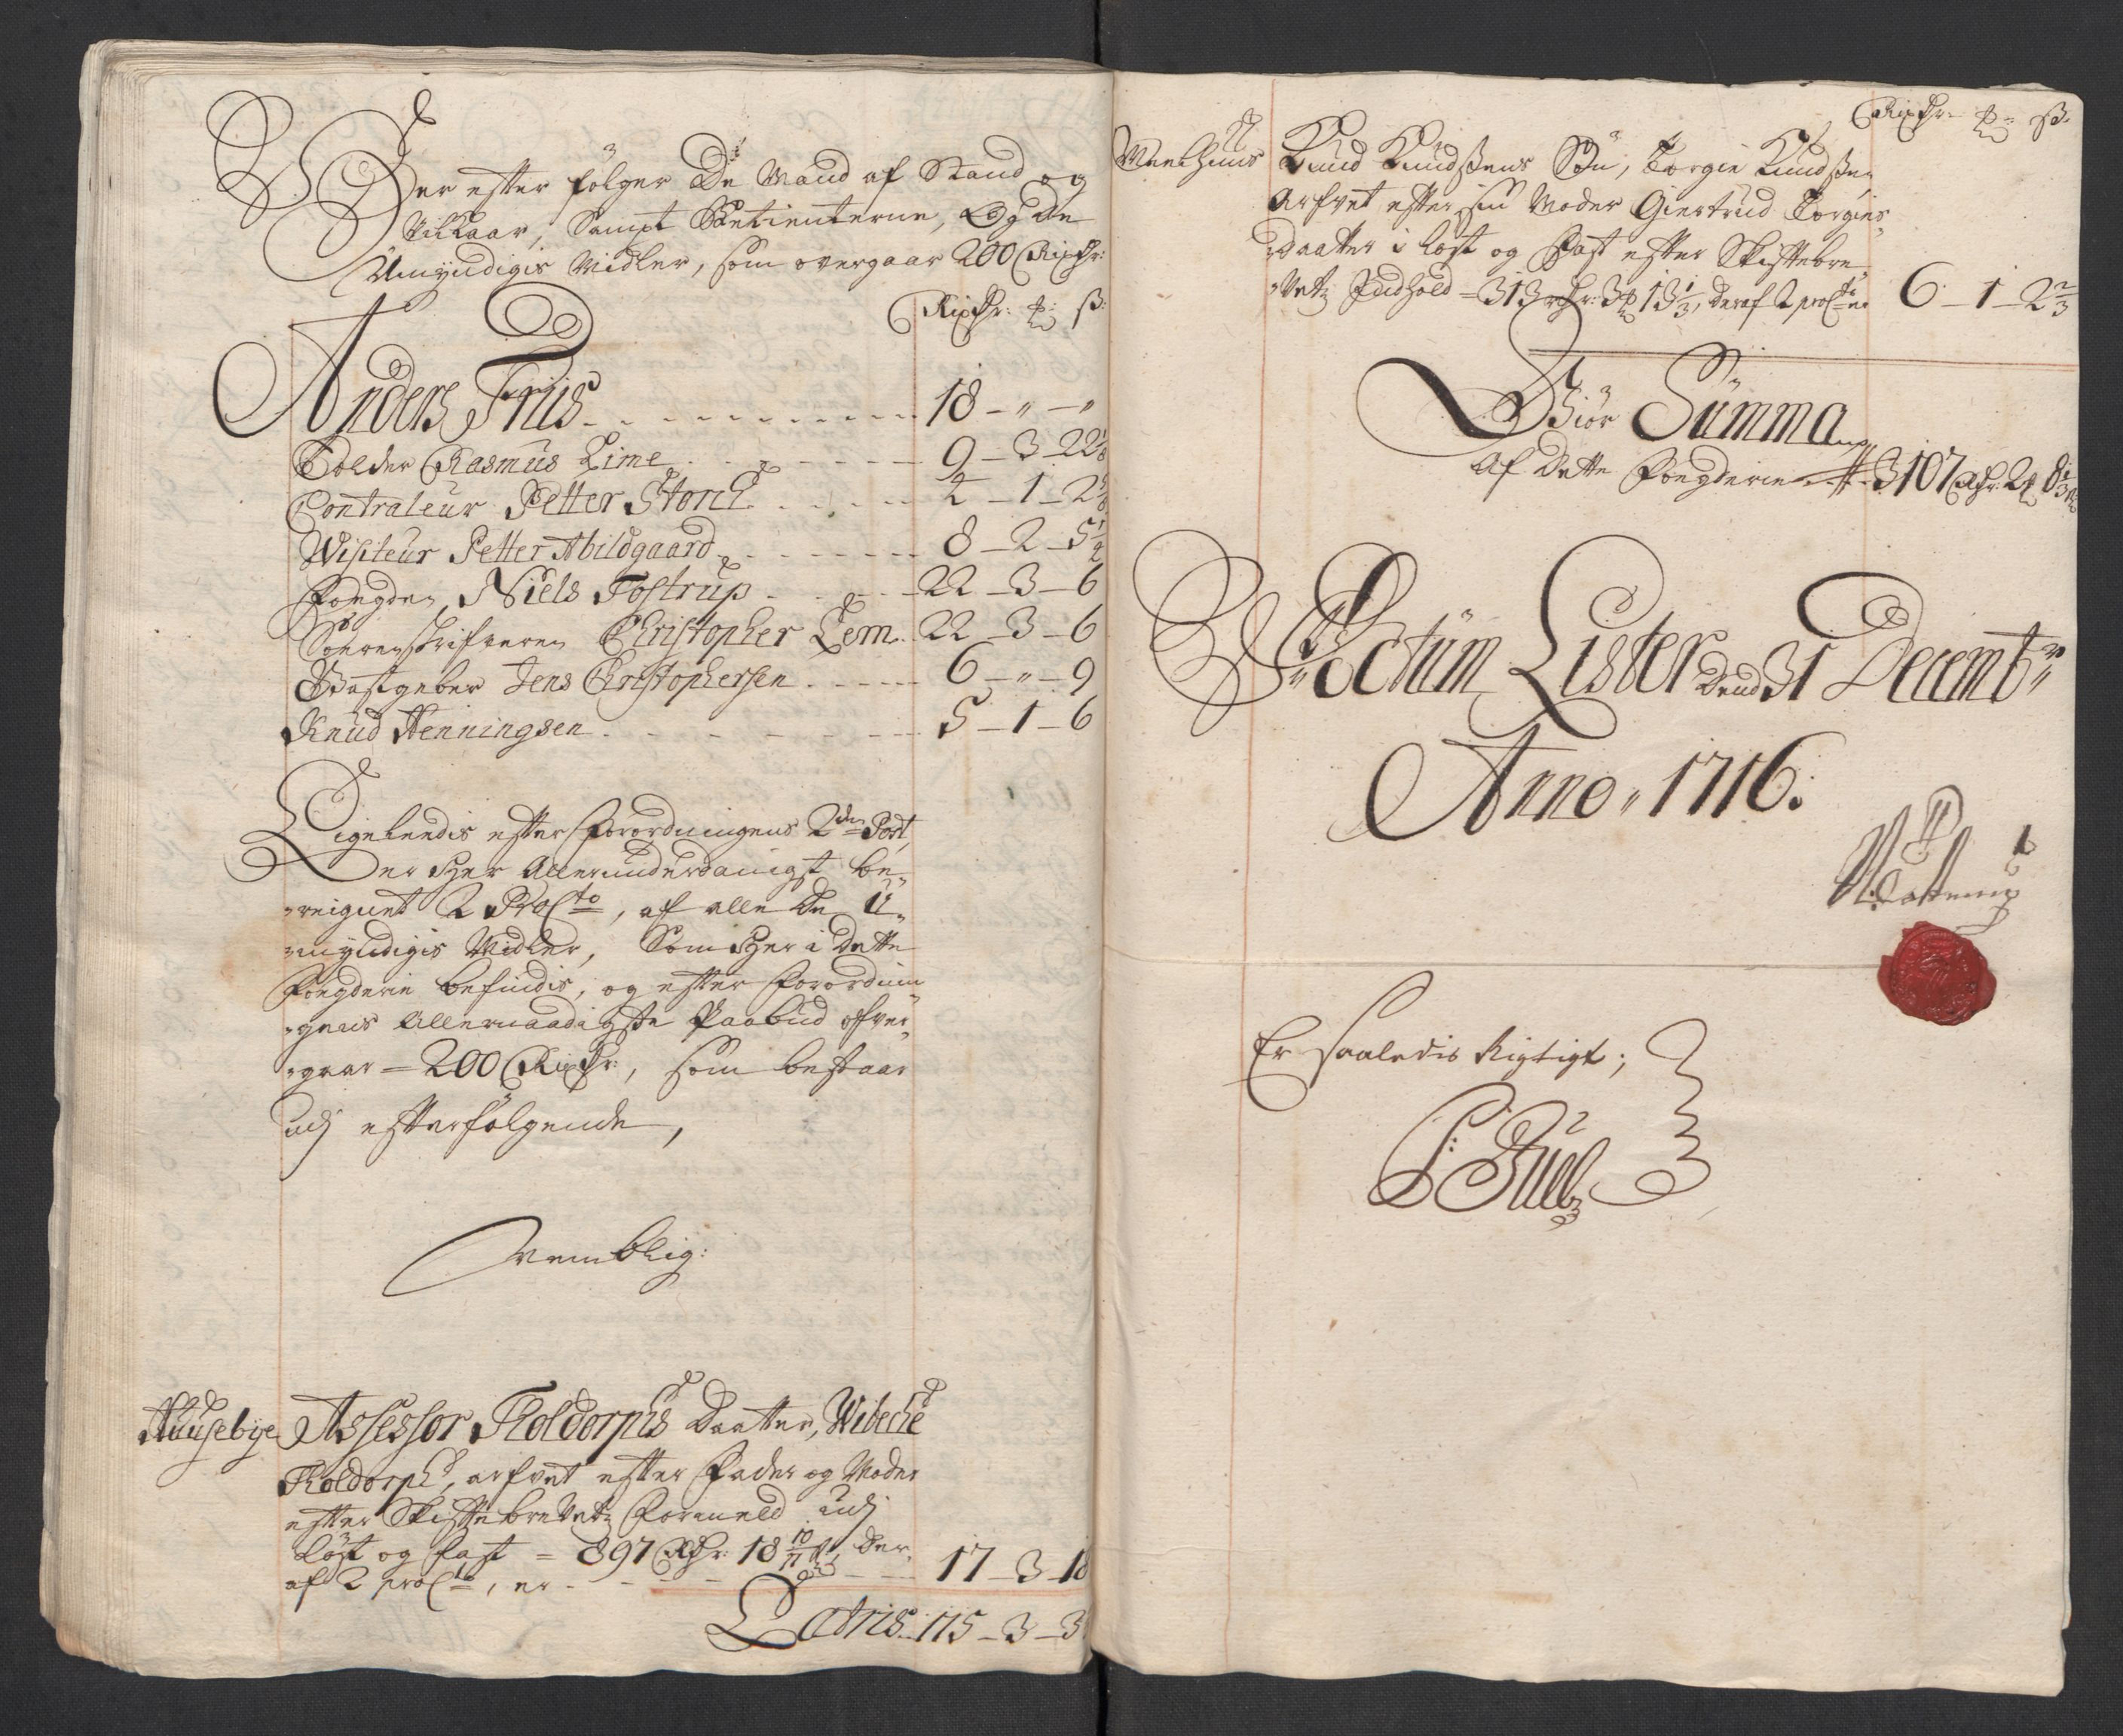 Her efter følger De Mænd af Stand og
Vilkaar, Sampt Betienterne, Og De
Umyndigis Midler, som overgaar 200 Rixdr:
Rixdr: ꝑ: ß:
Anders Friis 18 - " - "
Tolder Rasmus Lime 9 - 3 - 22 1/8
Contraleur Petter Storch 2 - 1 - 2
Visiteur Petter Abildgaard 8 - 2 - 5 1/2
Fougden, Niels Tostrup 22 - 3 - 6
Sorenskrifveren Christopher Lem 22 - 3 - 6
Giæstgeber Jens Christophersen 6 - " - 9
Knud Henningsen 5 - 1 - 6
Ligeleedis efter Forordningens 2den Post,
Er Her Allerunderdanigst be-
reignet 2 Pro Cto, af alle De U-
myndigis Midler, Som Her i Dette
Fougderie befindis, og efter Forordnin-
gens Allernaadigste Paabud ofver-
gaar = 200 Rixdr:, som bestaar
udj efterfølgende,
Nemblig:
Huusebye Assessor Roldorphs Daatter, Wibeche
Roldorph, arfvet efter Fader og Moder
efter Skiftebrevets Formeld udj
Løst og fast = 897 Rdr: 18 10/11 ß, Der-
af 2 pro Cto, er 17 - 3 - 18
Latris 115 - 3 - 3
Rixdr: ꝑ: ß:
Meelhuus Knud Knudsens Søn, Torgie Knudsen
Arfvet efter sin Moder Giertrud Torgies
Daatter i Løst og Fast efter Skiftebre-
vets Indhold = 313 rdr: 3 ꝑ 13 1/3, deraf 2 pro Cto er 6 - 1 - 2 2/3
Giør Summa
Af Dette Fougderie 3107 Rdr: 2 ꝑ 8 1/3 ß
Actum Lister Dend 31 Decembr
Anno 1716:
N Tostrup
Er saaledis Rigtigt;